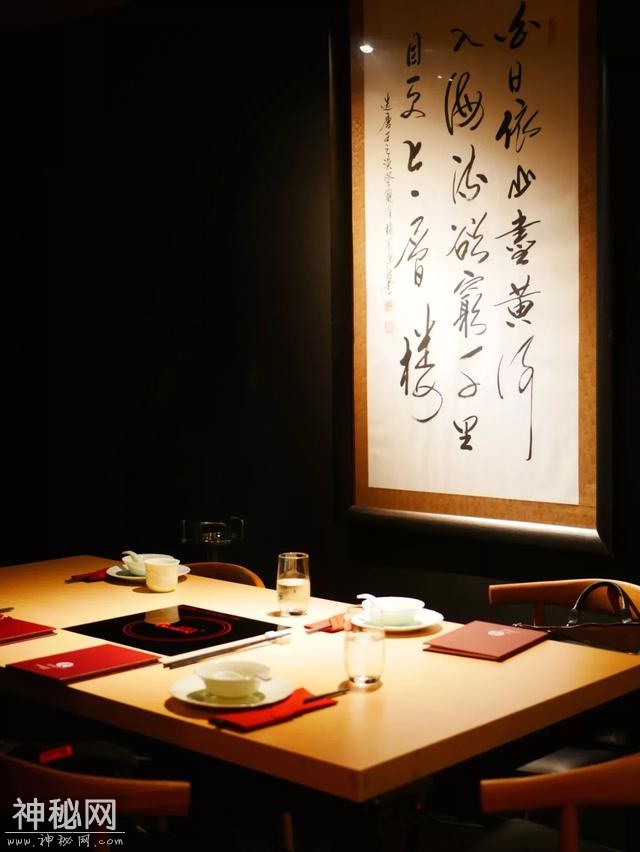 白日依山盡黄河
入海流欲窮千里
目更上一層樓
神秘网
www.神秘网.com